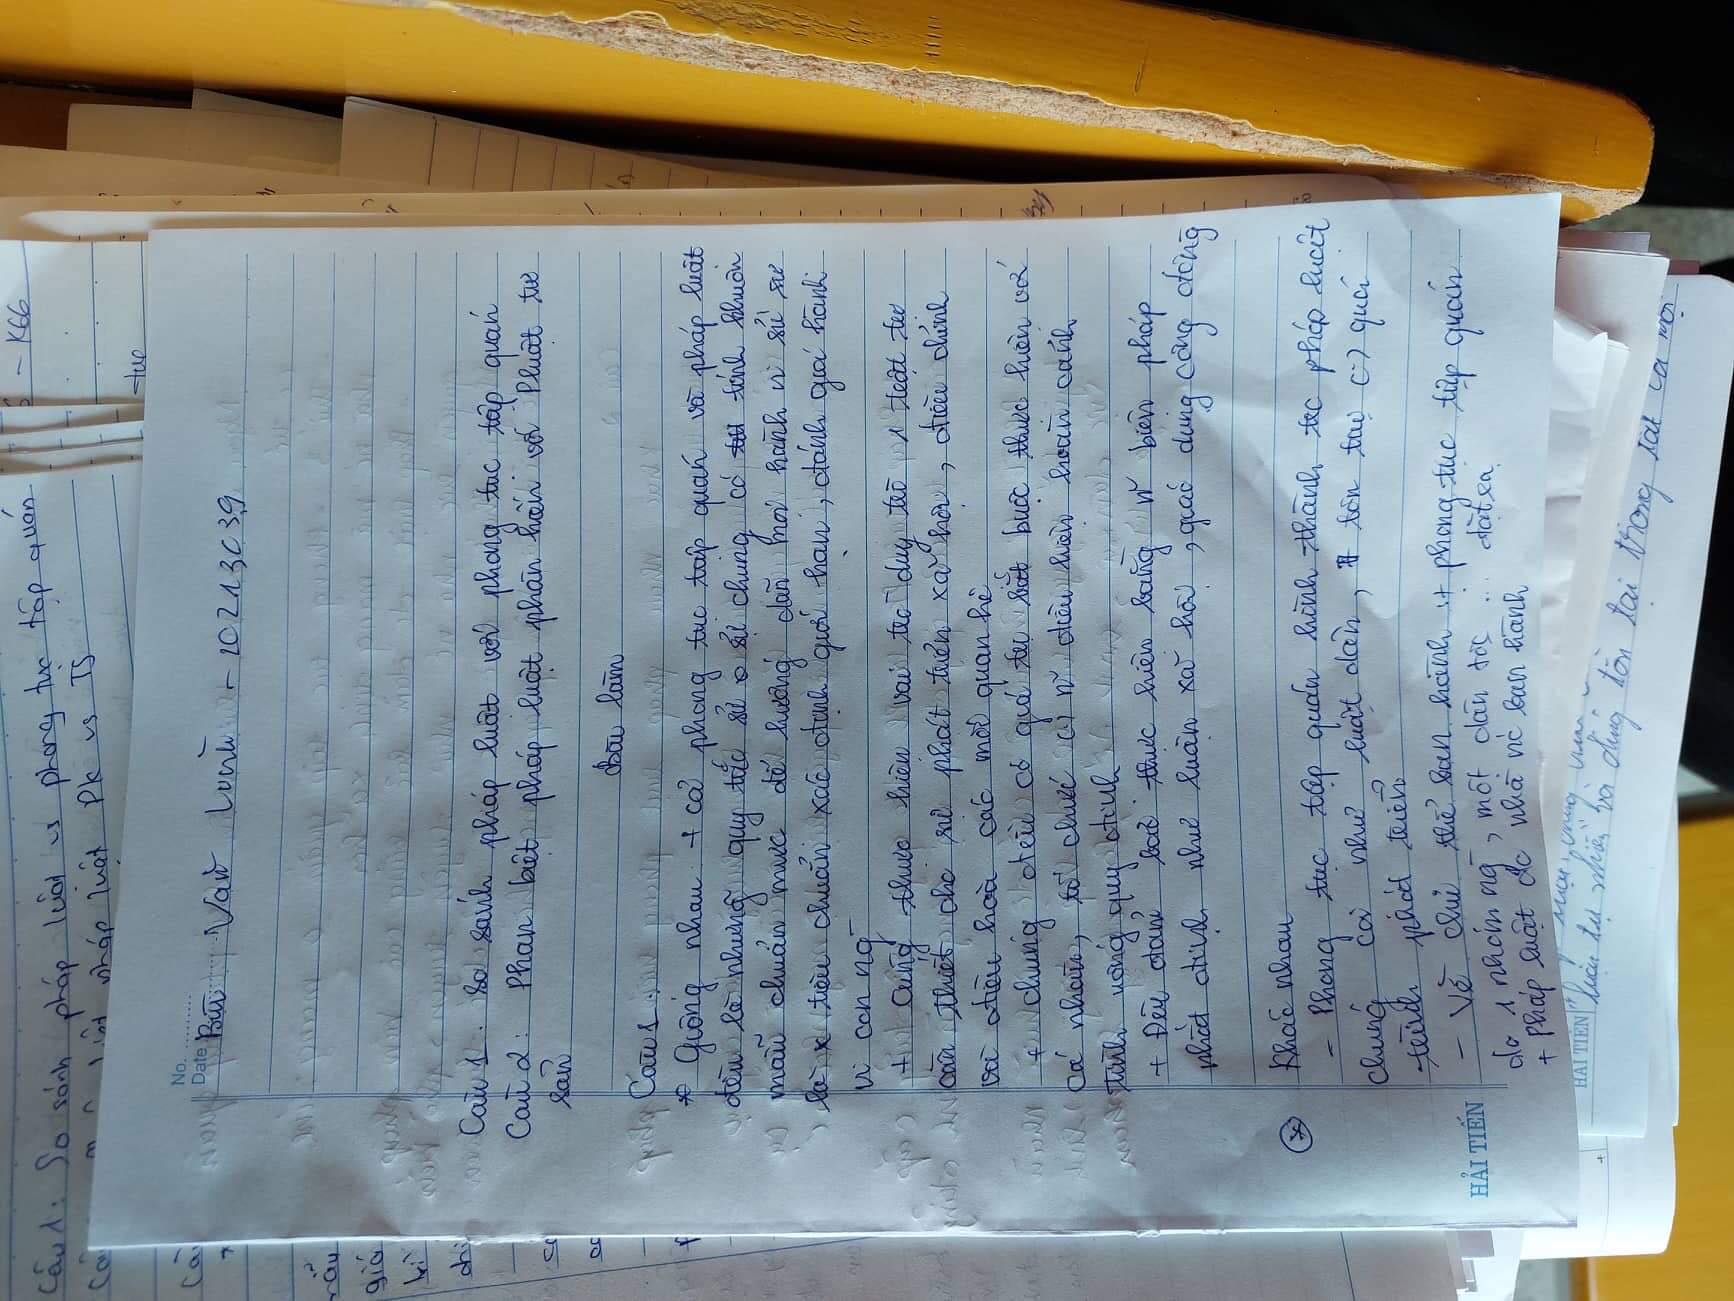 Câu 1: So sánh pháp luật vs phong tục tập quán
pháp luật PK vs TS
- K66
tục
No.
Date
Bùi Văn - 20213039
Câu 1: So sánh pháp luật với phong tục tập quán
Câu 2: Phân biệt pháp luật phân kiến với Pluật tư
sản
Bài làm
Câu 1:
* Giống nhau: + cả phong tục tập quán và pháp luật
đều là những quy tắc sử sử chung có tính khuôn
mẫu chuẩn mực để hướng dẫn mọi hành vi sử sự
là tiêu chuẩn xác định giới hạn, đánh giá hành
vi con ng
+ Cùng thực hiện vai trò duy trì 1 trật tự
cần thiết cho sự phát triển xã hội, điều chỉnh
và điều hoà các mối quan hệ
+ chúng đều có giá trị bắt buộc thực hiện với
cá nhân, tổ chức điều kiện hoàn cảnh
tình uống quy định
+ Đều đảm bảo thực hiện bằng n~ biện pháp
nhất định như luận xã hội, giáo dụng cộng đồng
* Khác nhau
- Phong tục tập quán hình thành trc pháp luật
chúng coi như luật dân, tồn tại quá
trình phát triển
- Về chủ thể ban hành: + phong tục tập quán
do 1 nhóm ng, một dân tộc ... đặt ra
+ pháp luật do nhà nc ban hành
HẢI TIẾN
HẢI TIẾN
luận tự nhiên và đúng tồn tại trong tất cả mọi